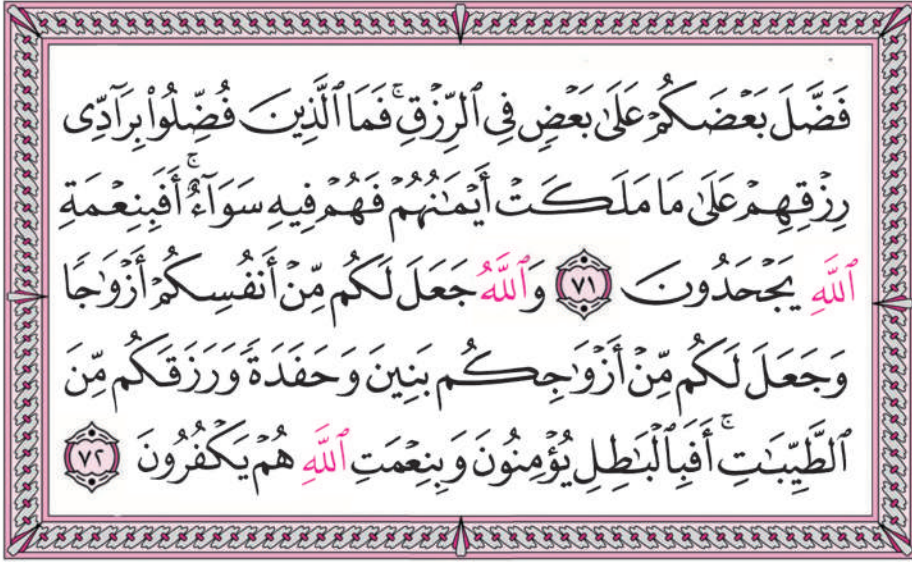 فَضَّلَ بَعۡضَكُمۡ عَلَىٰ بَعۡضٖ فِي ٱلرِّزۡقِۚ فَمَا ٱلَّذِينَ فُضِّلُواْ بِرَآدِّي
رِزۡقِهِمۡ عَلَىٰ مَا مَلَكَتۡ أَيۡمَٰنُهُمۡ فَهُمۡ فِيهِ سَوَآءٌۚ أَفَبِنِعۡمَةِ
ٱللَّهِ يَجۡحَدُونَ ٧١ وَٱللَّهُ جَعَلَ لَكُم مِّنۡ أَنفُسِكُمۡ أَزۡوَٰجٗا
وَجَعَلَ لَكُم مِّنۡ أَزۡوَٰجِكُم بَنِينَ وَحَفَدَةٗ وَرَزَقَكُم مِّنَ
ٱلطَّيِّبَٰتِۚ أَفَبِٱلۡبَٰطِلِ يُؤۡمِنُونَ وَبِنِعۡمَتِ ٱللَّهِ هُمۡ يَكۡفُرُونَ ٧٢